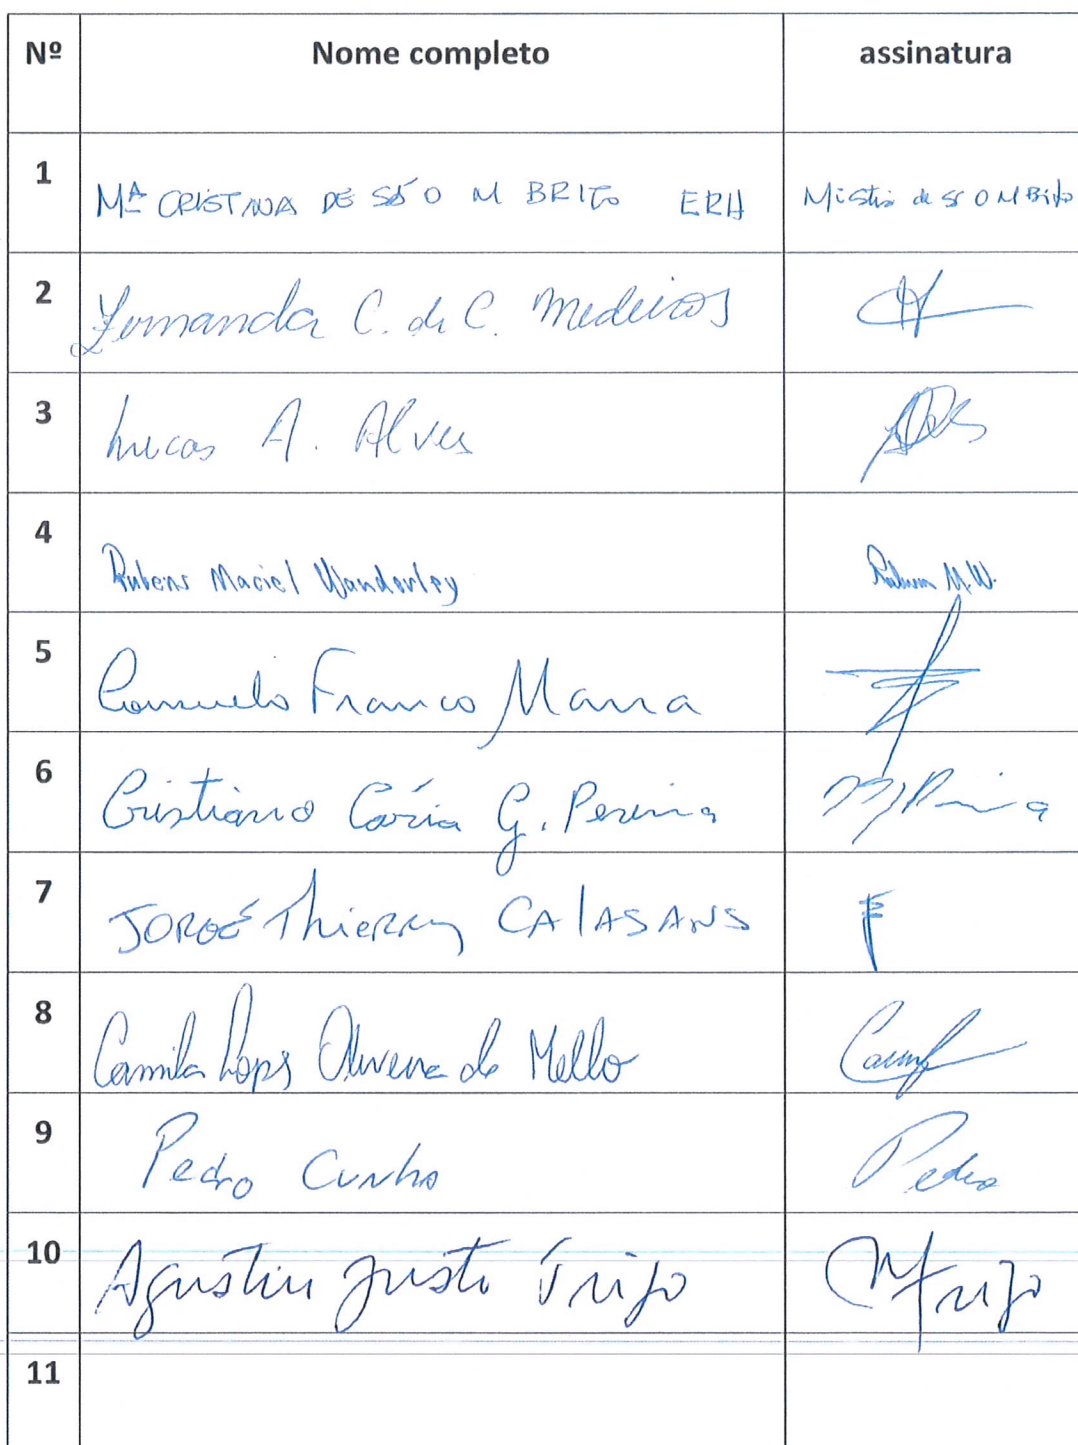 Nº Nome completo assinatura
1 Mª CRISTINA DE SÁ O M BRITO ERH
2 Fernanda C. de C. Medeiros
3 Lucas A. Alves
4 Rubens Maciel Wanderley Rubens M.W.
5 Franco
6 Cristiano Cária G. Pereira
7 JORGE Thierry CALASANS
8 Camila Lopes Oliveira de Mello
9 Pedro Cunha Pedro
10 Agustin Justo Trigo
11